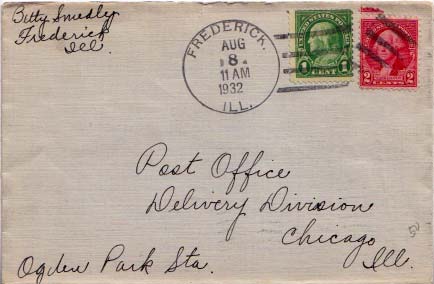 Betty Smedly
Frederick
Ill.
FREDERICK,
AUG
8
11 AM
1932
ILL.
1 CENT 1
2 CENTS 2
Post Office
Delivery Division
Chicago
Ill.
Ogden Park Sta.